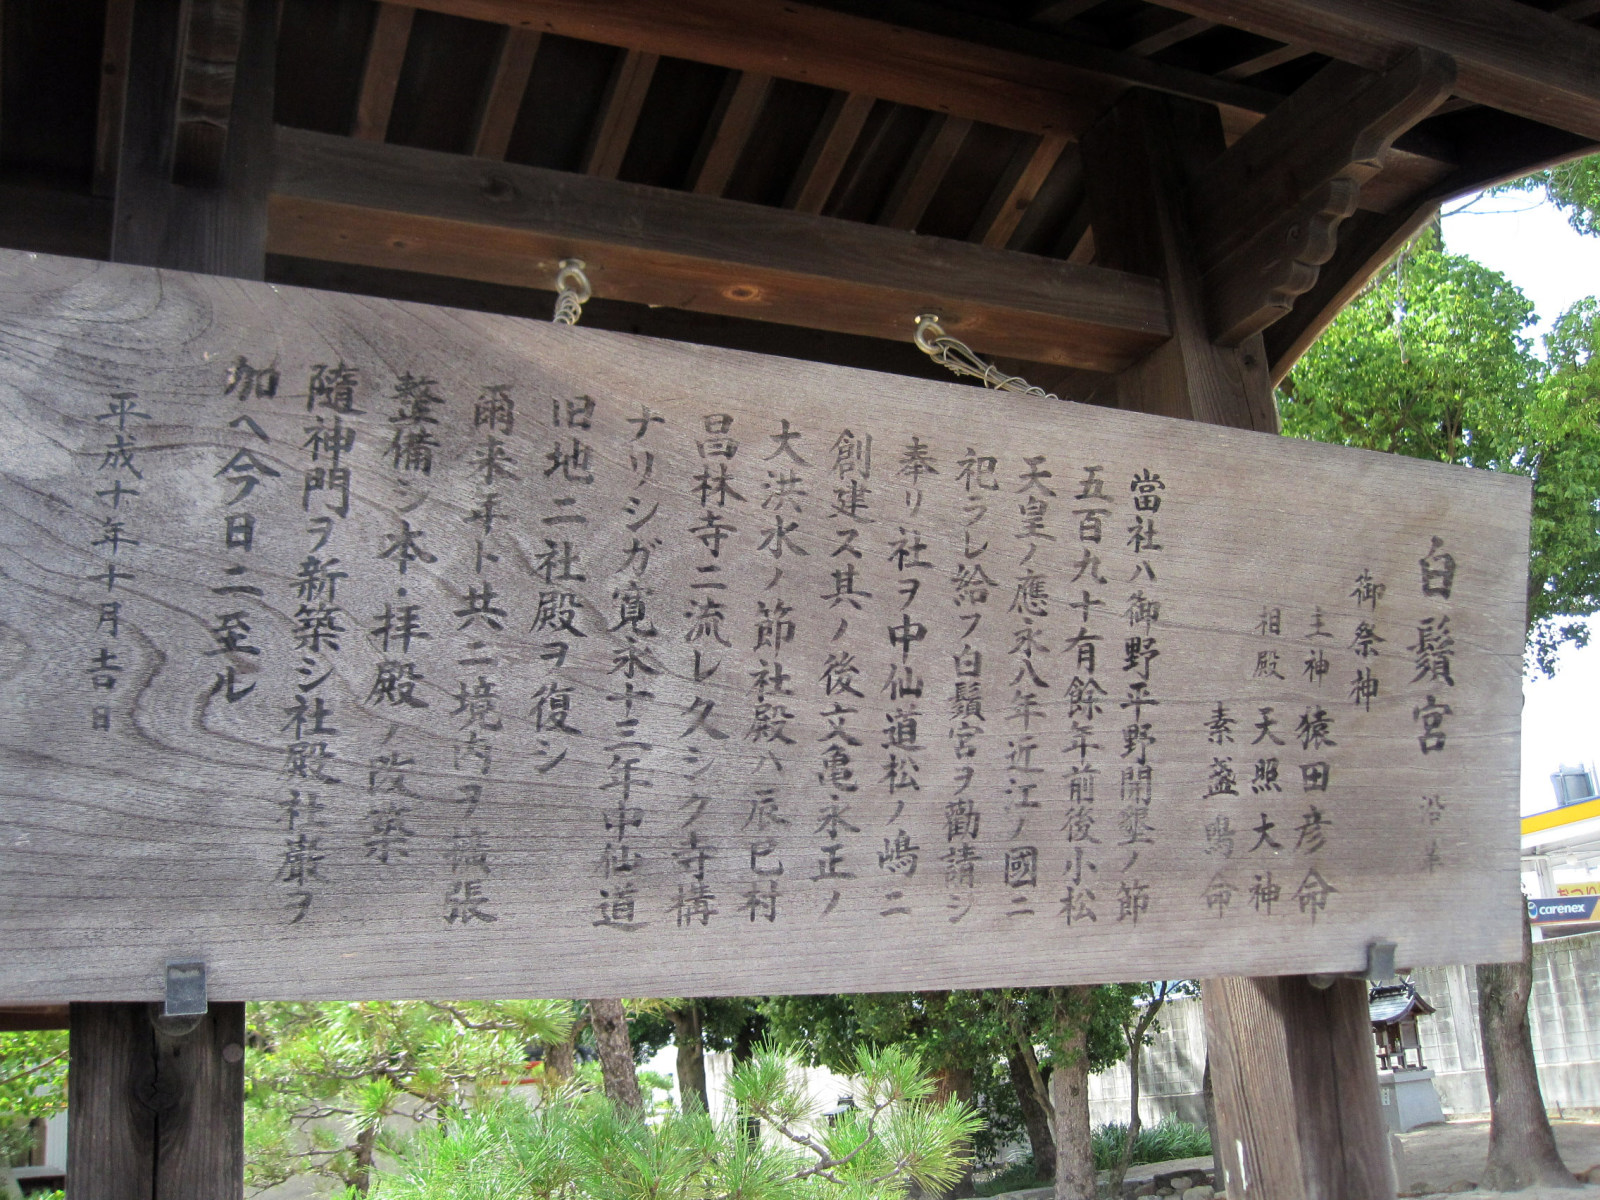 白鬚宮 沿革
御祭神
主神 猿田彦命
相殿 天照大神
素盞鳴命
當社ハ御野平野開墾ノ節
五百九十有餘年前後小松
天皇ノ應永八年近江ノ國ニ
祀ラレ給フ白鬚宮ヲ勸請シ
奉リ社ヲ中仙道松ノ嶋ニ
創建ス其ノ後文亀永正ノ
大洪水ノ節社殿ハ辰巳村
昌林寺ニ流レ久シク寺構
ナリシガ寛永十三年中仙道
旧地ニ社殿ヲ復シ
爾来年ト共ニ境内ヲ擴張
整備シ本・拝殿ノ改築
隨神門ヲ新築シ社殿社巌ヲ
加ヘ今日ニ至ル
平成十年十月吉日
carenex